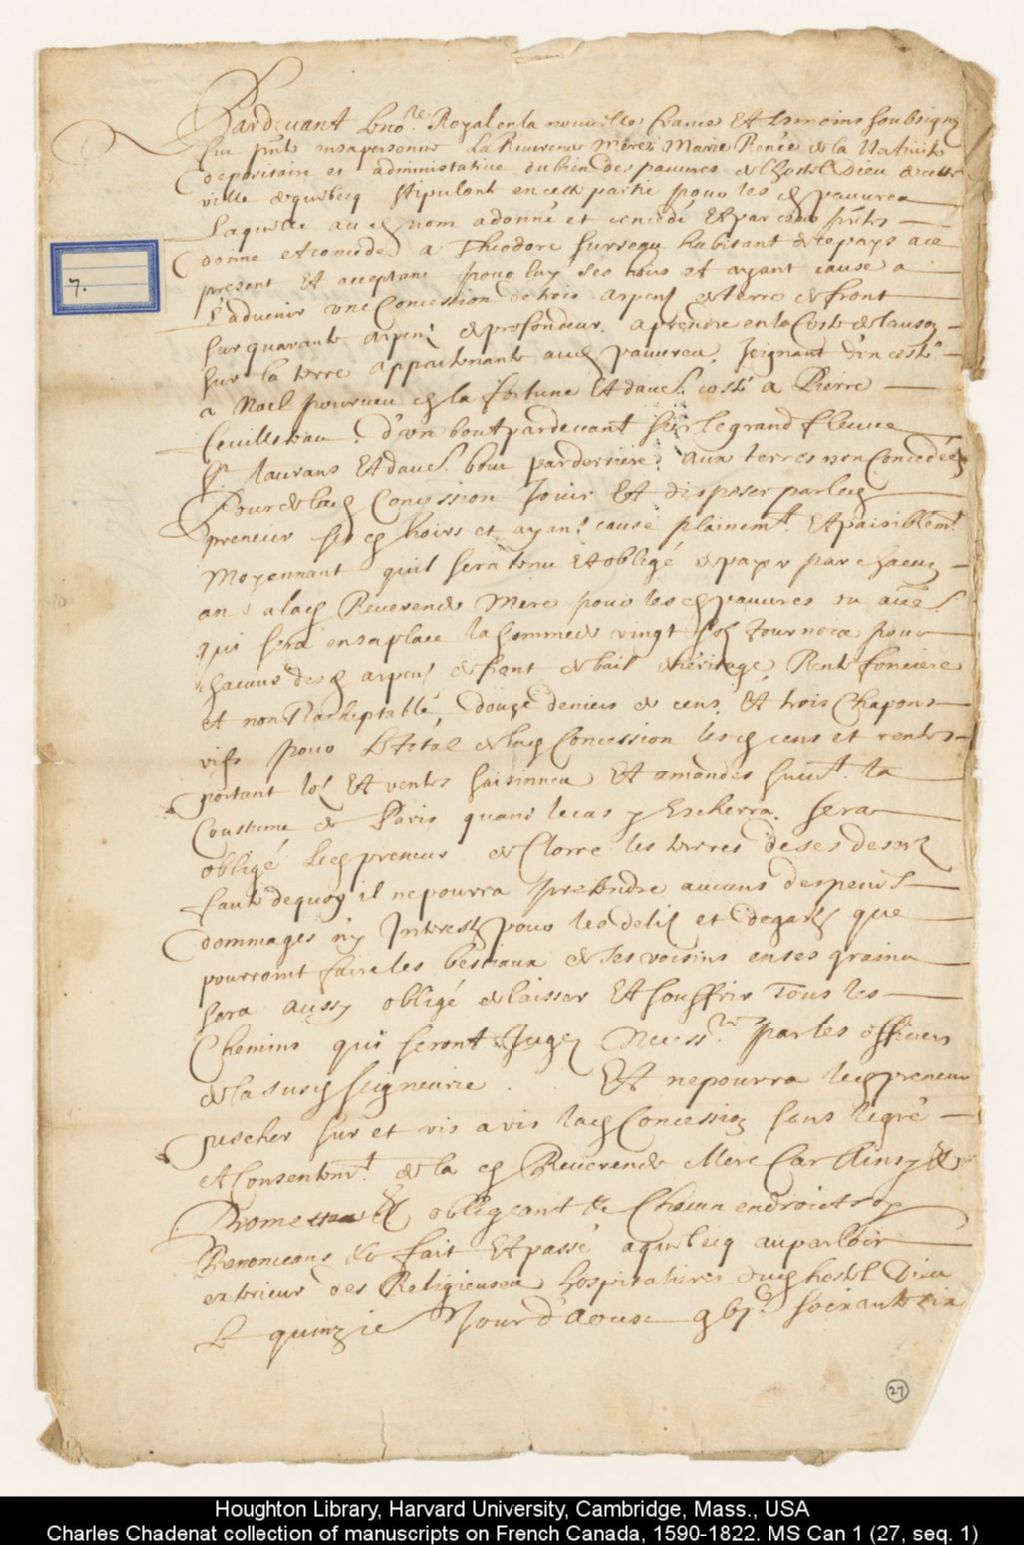 Pardevant le no.re Royal en la nouvelle France Et tesmoins soubsignez
fut pnte en sa personne La Reverende Mere Marie Renée de la Nativité
depositaire et administatrice du bien des pauvres de l'hostel Dieu de cette
ville de quebecq stipulant en cette partie pour les d pauvres
Laquelle au d nom a donné et concedé Et par ces pntes
donne et concede a Theodore Surreau habitant de ce pays a ce
present Et acceptant pour luy ses hoirs et ayant cause a
l'advenir une Concession de trois arpens de terre de front
sur quarante arpens de profondeur. a prendre en la Coste de Lauson
sur la terre appartenante aud pauvres, Joignant d'un costé
a Noel pourveu d la fortune Et d'aue. costé a Pierre
d'un bout pardevant sur le grand fleuve
St. Laurans Et d'aue. bout parderriere aux terres non Concedées
Pour de lad Concession Jouir Et disposer par led
preneur ses d hoirs et ayans cause plainemt. Et paisiblemt.
Moyennant quil sera tenu Et obligé de payer par chacun
an a lad Reverende Mere pour les d pauvres ou
qui sera en sa place la somme de vingt solz tournois pour
chacuns des d arpens de front de bail d'héritage, Rente fonciere
et non Racheptable, douze deniers de cens, Et trois Chapons
vifs pour le total de lad Concession les d cens et rentes
portant lotz Et ventes saisinnes Et amandes suivt. la
Coustume de Paris quand le cas y Escherra. sera
obligé led preneur de Clorre les terres de ses deserts
faute dequoy il ne pourra pretendre aucuns despens
dommages ny Interestz pour les delitz et degasts que
pourront faire les bestiaux de ses voisins en ses grains
sera aussy obligé de laisser Et souffrir Tous les
Chemins qui seront Jugez Necess.res par les officiers
de la susd seigneurie. Et ne pourra led preneur
pescher sur et vis a vis lad Concession sans le gré
et Consentemt. de la d Reverende Mere Car Ainsy &
Promettans & obligeant & Chacun endroict soy
Renonceans &c fait Et passé a quebecq au parloir
exterieur des Religieuses hospitalieres dud hostel Dieu
Le quinzie Jour d'Aoust gbic. soixante six
7.
27
Houghton Library, Harvard University, Cambridge, Mass., USA
Charles Chadenat collection of manuscripts on French Canada, 1590-1822. MS Can 1 (27, seq. 1)